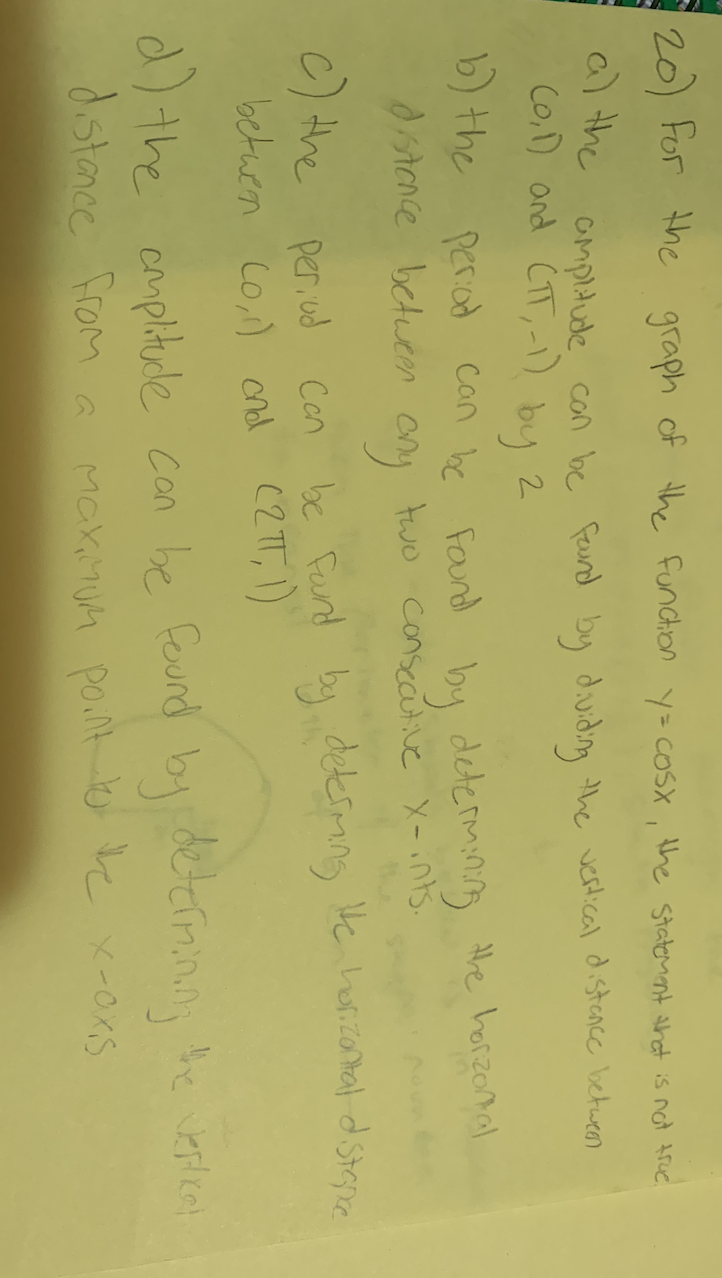 20) For the graph of the function y=cosx, the statement that is not true
a) the amplitude can be found by dividing the vertical distance between
(0,1) and (π,-1) by 2
b) the period can be found by determining the horizontal
distance between any two consecutive x-ints.
c) the period can be found by determing the horizontal distance
between (0,1) and (2π,1)
d) the amplitude can be found by determining the vertical
distance from a maximum point to the x-axis